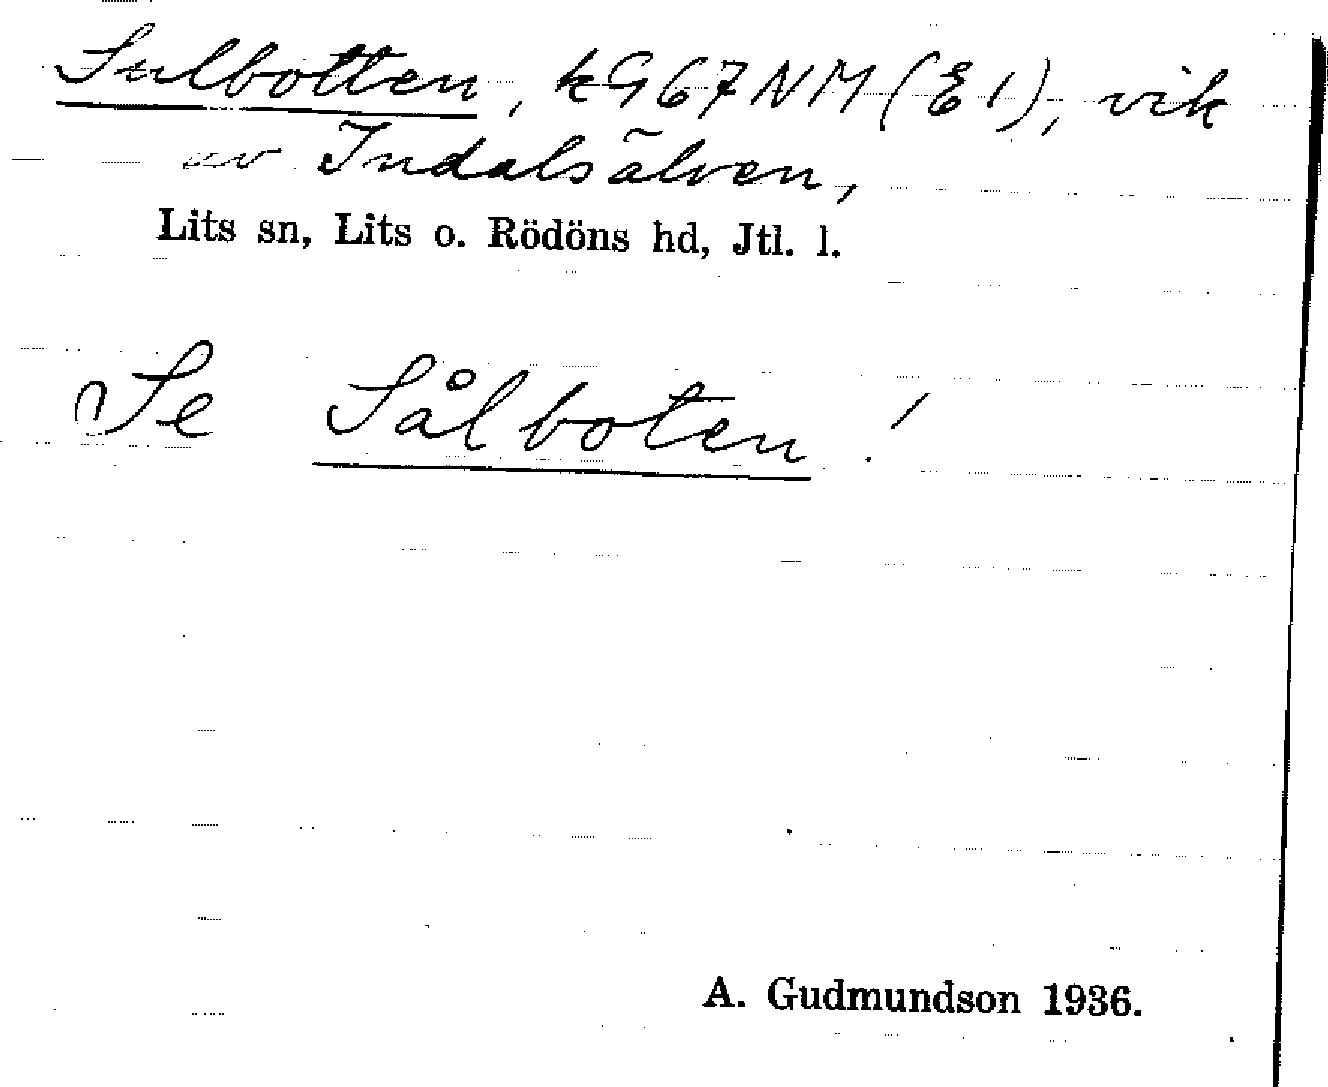 Sulbotten, kG67NM(E1), vik
av Indalsälven,
Lits sn, Lits o. Rödöns hd, Jtl. l.
Se Sålboten!
A. Gudmundson 1936.